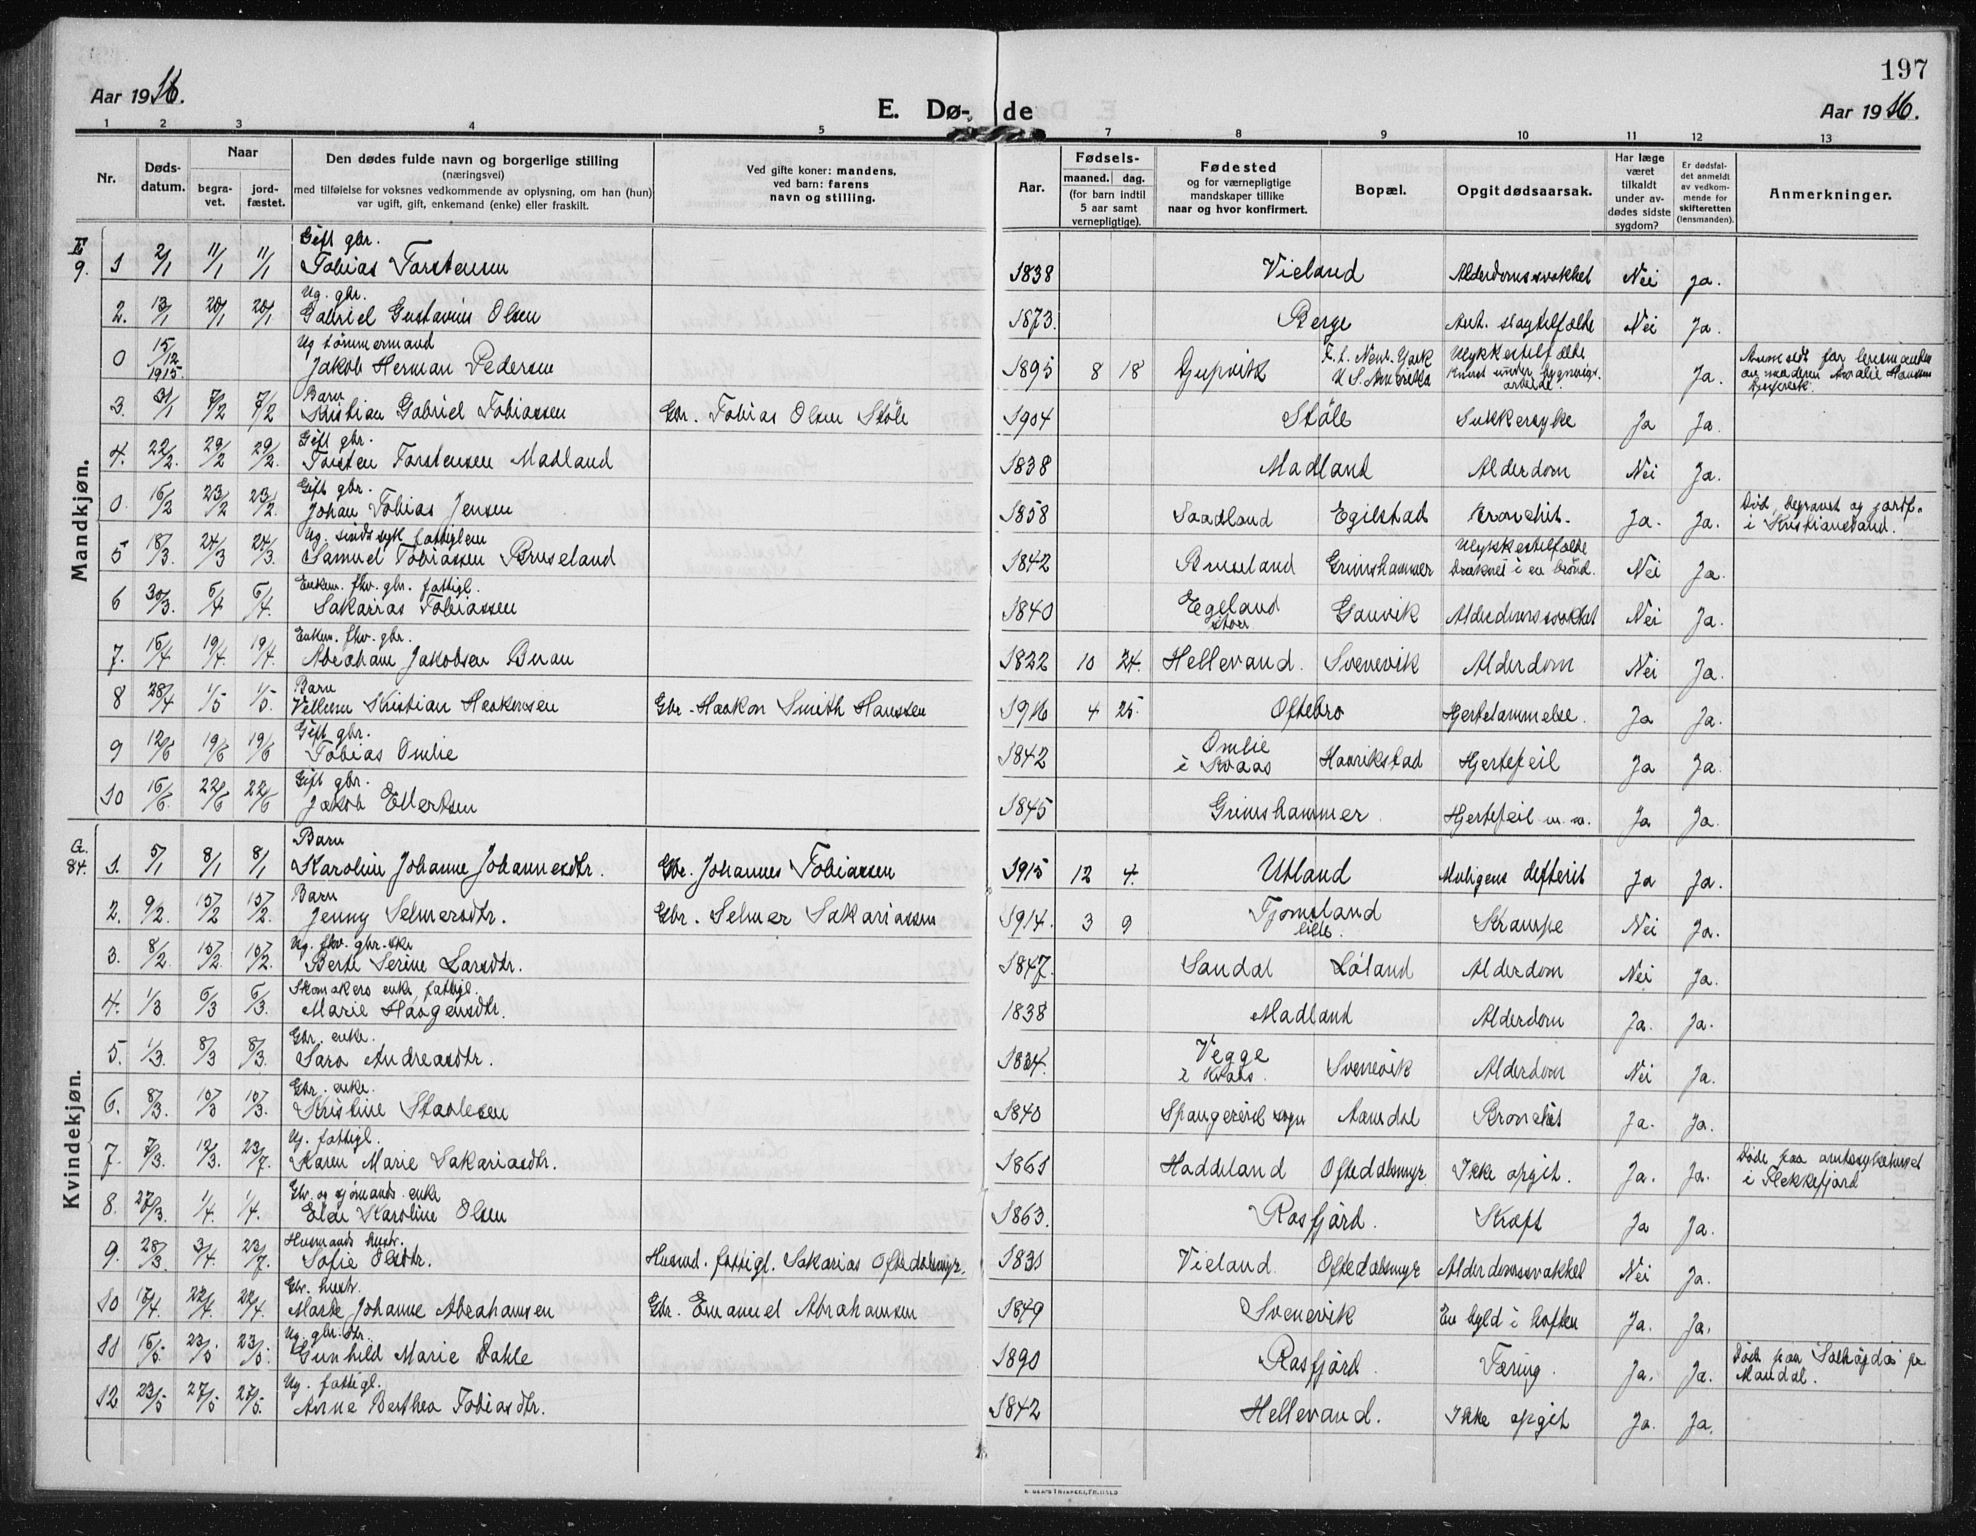 197
Aar 1916.
E. Dø-de
Aar 1916.
1 2 3 4 5 7 8 9 10 11 12 13
Nr.
Døds-datum.
Naar
begra-vet.
jord-fæstet.
Den dødes fulde navn og borgerlige stilling
(næringsvei)
med tilføielse for voksnes vedkommende av oplysning, om han (hun)
var ugift, gift, enkemand (enke) eller fraskilt.
Ved gifte koner: mandens,
ved barn: farens
navn og stilling.
Aar.
Fødsels-
maaned. dag.
(for barn indtil
5 aar samt
vernepligtige).
Fødested
og for værnepligtige
mandskaper tillike
naar og hvor konfirmert.
Bopæl.
Opgit dødsaarsak.
Har læge
været
tilkaldt
under av-
dødes sidste
sygdom?
Er dødsfal-
det anmeldt
av vedkom-
mende for
skifteretten
(lensmanden).
Anmerkninger.
Mandkjøn.
9.
Gift gbr.
1 2/1 11/1 11/1 Tobias Torstensen 1838 Vieland Alderdomssvakhet Nei Ja.
Ug. gbr.
2. 13/1 20/1 20/1 Gabriel Gustavius Olsen 1873. Berge Ant. slagtilfælde Nei Ja.
Ug tømmermand
0 15/12 1915. Jakob Herman Pedersen 1895 8 18 Djupvik U. S. Amerika Ulykkestilfælde Ja.
Barn
3. 31/1 7/2 7/2 Kristian Gabriel Tobiassen Gbr. Tobias Olsen Støle 1904 Støle Sukkersyke Ja Ja.
Gift gbr.
4. 22/2. 29/2 29/2. Torsten Torstensen Madland 1838 Madland Alderdom Nei Ja.
Gift gbr.
0. 16/2 23/2 23/2. Johan Tobias Jensen 1858 Saadland Egilstad Bronchit. Ja. Ja. Død, begravet og jordf.
i Kristianssand.
Ug. sindssyk fattiglem
5 18/3. 24/3 24/3. Samuel Tobiassen Bruseland 1842 Bruseland Grimshammer Ulykkestilfælde
Druknet i en brønd. Nei Ja.
Enkem. fhv. gbr. fattigl.
6 30/3. 6/4 6/4. Sakarias Tobiassen 1840 Egeland
stor Gauvik Alderdomssvakhet Nei Ja.
Enkem. fhv. gbr.
7. 15/4 19/4. 19/4. Abraham Jakobsen Buan 1822 10 24. Hellevand. Svenevik Alderdom Nei Ja.
Barn
8 28/4 1/5 1/5. Villum Kristian Haakonsen Gbr. Haakon Smith Hanssen 1916 4 25. Oftebro Hjertelammelse. Ja Ja.
Gift gbr.
9 12/6 19/6 19/6 Tobias Omlie 1842 Omlie
i Kvaas Haarikstad Hjertefeil Ja Ja.
Gift gbr.
10 16/6. 22/6 22/6 Jakob Ellertsen 1845 Grimshammer. Hjertefeil m. m. Ja Ja.
Kvindekjøn.
G.
84.
Barn
1. 5/1 8/1 8/1 Karoline Johanne Johannesdtr. Gbr. Johannes Tobiassen 1915 12 4. Utland Muligens difterit Ja Ja.
Barn
2. 9/2. 15/2 15/2. Jenny Selmersdtr. Gbr. Selmer Sakariassen 1914. 3 9 Fjomsland
lille. Krampe Nei Ja.
Ug. fhv. gbr.ske
3. 8/2. 15/2. 15/2. Berte Serine Larsdtr. 1847. Sandal Løland Alderdom Nei Ja.
Skomakers enke, fattigl.
4. 1/3 6/3 6/3. Marie Haagensdtr. 1838 Madland Alderdom Ja. Ja.
Gbr. enke.
5. 1/3. 8/3 8/3. Sara Andreasdtr. 1834. Vegge
i Kvaas. Svenevik Alderdom Nei Ja.
Gbr. enke.
6. 8/3. 15/3 15/3. Kristine Staalesen 1840 Spangereid sogn Aamdal Bronchit Ja. Ja.
Ug. fattigl.
7. 7/3. 12/3. 23/7. Karen Marie Sakariasdtr. 1861 Haddeland Oftedalsmyr. Ikke opgit. Ja. Ja. Døde paa amtssykehuset
i Flekkefjord
Gbr. og sjømands enke
8. 27/3. 1/4. 1/4. Elen Karoline Olsen 1863. Rosfjord. Kræft Ja Ja.
Husmands hustr.
9. 28/3. 3/4 23/7. Sofie Olsdtr. Husmd. fattigl. Sakarias Oftedalsmyr. 1831 Vieland. Oftedalsmyr Alderdomssvakhet Nei Ja.
Gbr. hustr.
10 17/4 22/4 22/4. Marte Johanne Abrahamsen Gbr. Emanuel Abrahamsen 1849 Svenevik En byld i hoften Ja. Ja.
Ug. gbr. dtr.
11 16/5 23/5 23/5. Gunhild Marie Dahle 1890 Rosfjord. Tæring. Ja. Ja. Døde paa Solhøgda pr
Mandal.
Ug. fattigl.
12 23/5 27/5 27/5. Anne Berthea Tobiasdtr. 1842 Hellevand. Ikke opgit Ja. Ja.